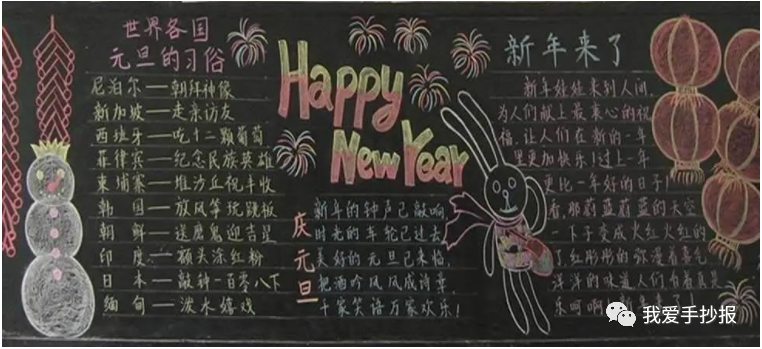 世界各国
元旦的习俗
尼泊尔—朝拜神像
新加坡—走亲访友
西班牙—吃十二颗葡萄
菲律宾—纪念民族英雄
柬埔寨—堆沙丘祝丰收
韩国—放风筝玩跷板
朝鲜—送魔鬼迎吉星
印度—额头涂红粉
日本—敲钟一百零八下
缅甸—泼水嬉戏
Happy
New Year
庆元旦
新年的钟声已敲响
时光的车轮已过去
美好的元旦已来临,
把酒吟风风成诗章
千家笑语万家欢乐!
新年来了
新年娃娃来到人间,
为人们献上最衷心的祝
福,让人们在新的一年
里更加快乐!过上一年
更比一年好的日子!
看,那蔚蓝蔚蓝的天空
一下子变成火红火红的
了红彤彤的弥漫着喜气
洋洋的味道人们看着真是
乐呵
我爱手抄报